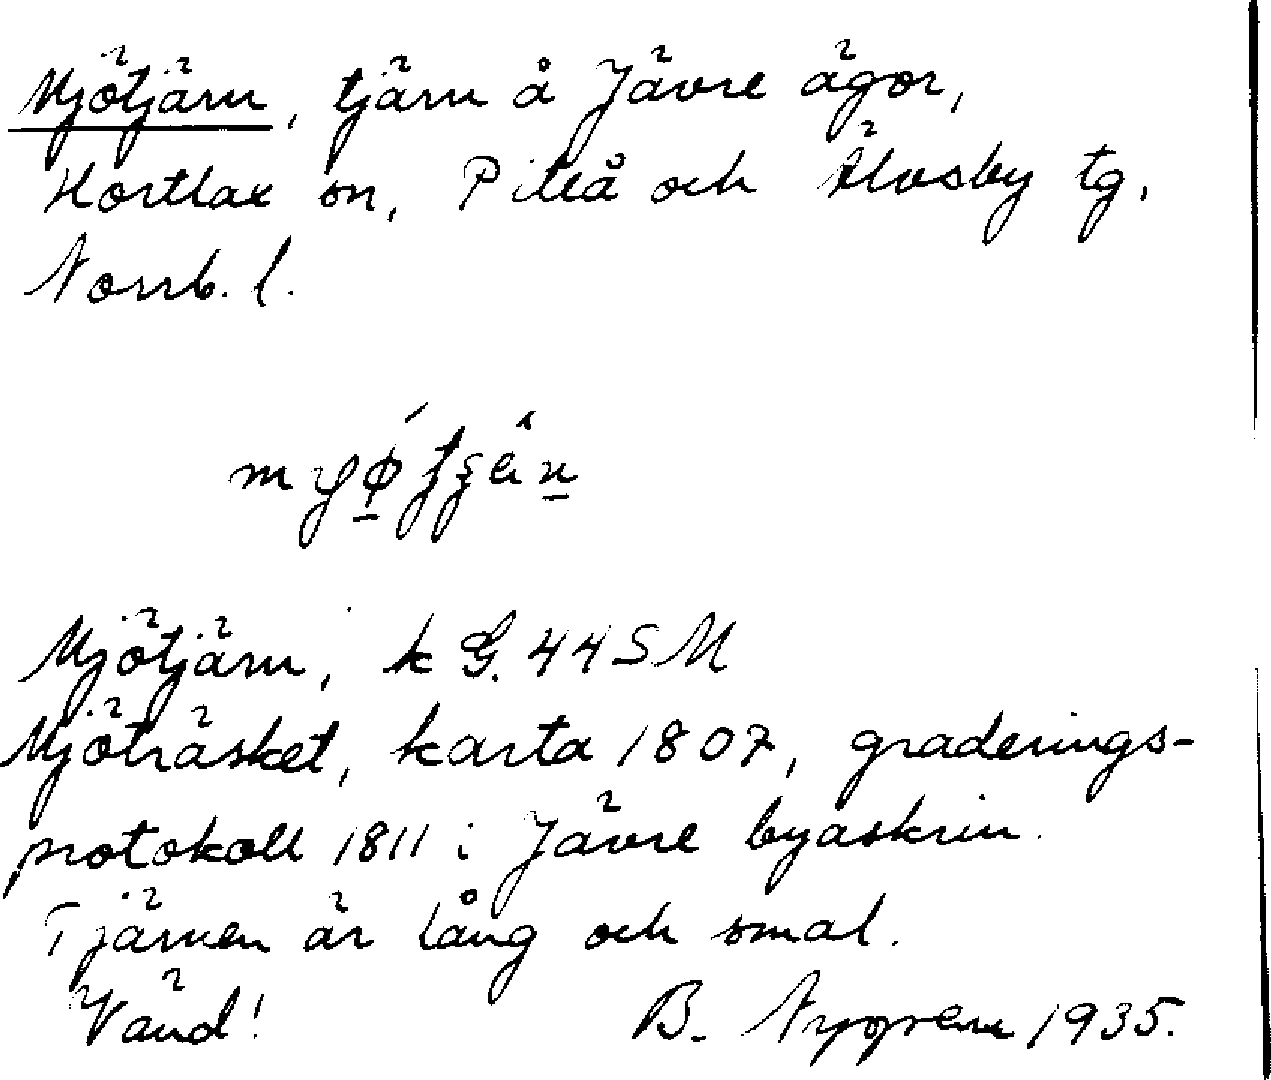 Mjötjärn, tjärn å Jävre ägor,
Hortlax sn, Piteå och Älvsby tg,
Norrb. l.
Mjötjärn, k G. 44 S M
Mjöträsket, karta 1807, graderings-
protokoll 1811 i Jävre byaskrin.
Tjärnen är lång och smal.
Vänd! B. Nygren 1935.